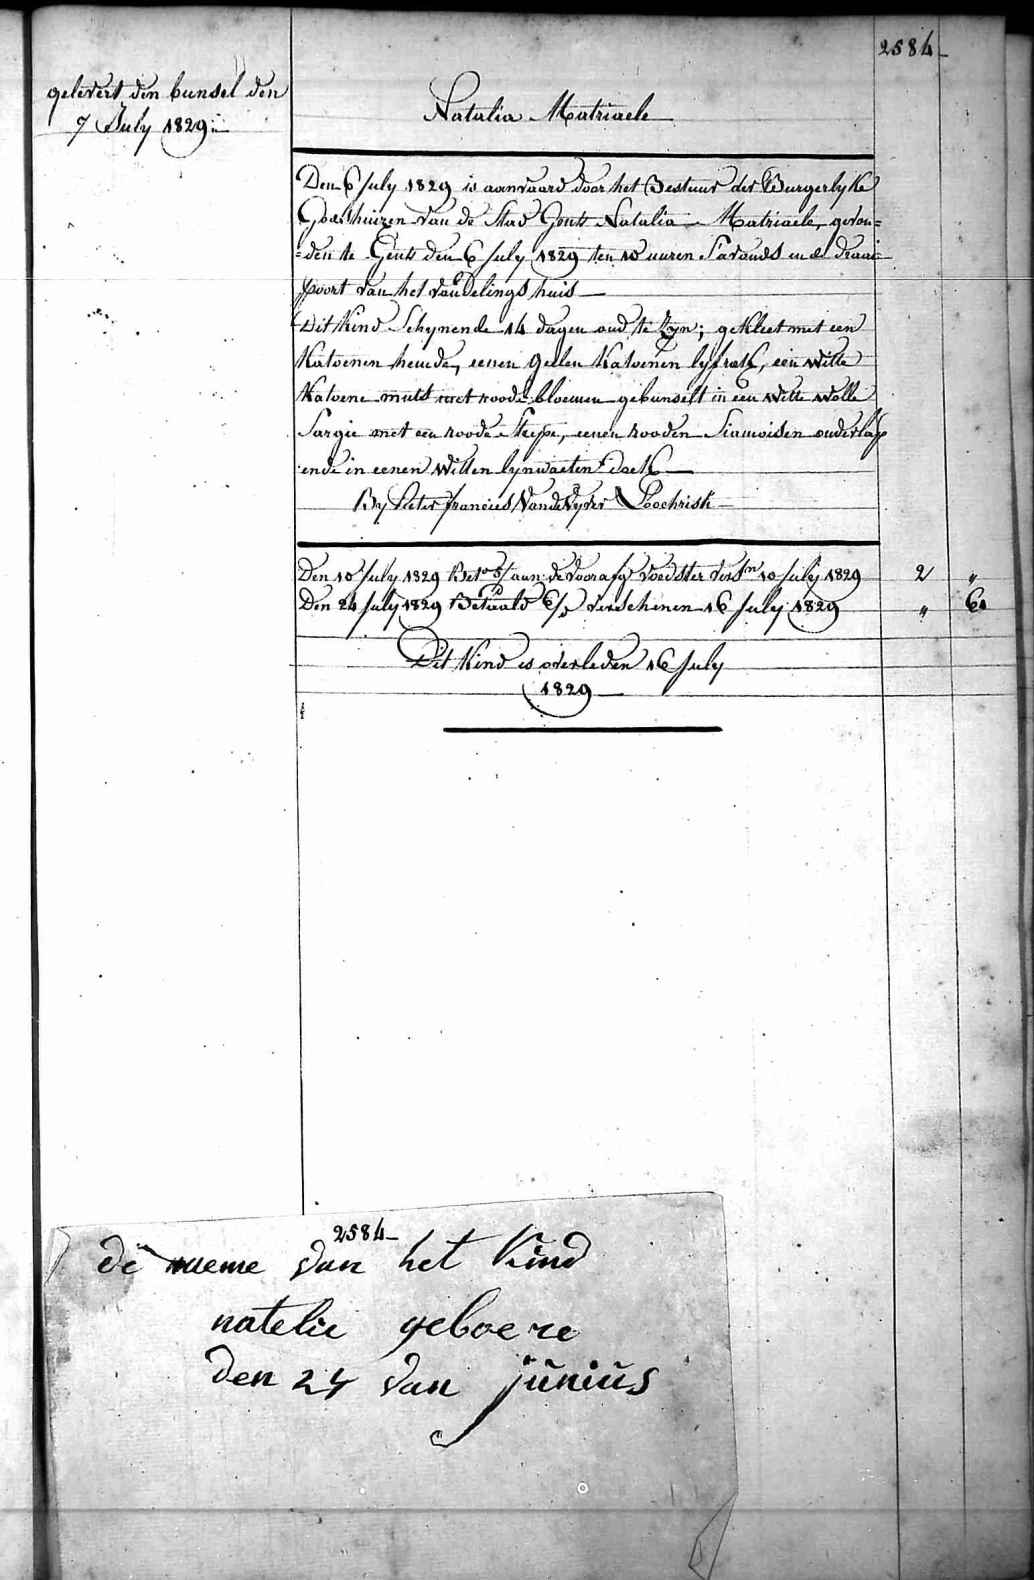 2584
gelevert den bunsel den
7 July 1829
Natalia Matriaele
Den 6 July 1829 is aanvaard door het Bestuur der Burgerlyke
Godshuizen van de Stad Gent Natalia Matriaele, gevon=
=den te Gent den 6 July 1829 ten 10 uuren S'avonds in de draai-
poort van het vondelings huis
Dit Kind Schynende 14 dagen oud te Zyn; gekleet met een
Katoenen hemde, eenen geelen Katoenen lyfrok, een witte
Katoene muts met roode bloemen gebunselt in een witte wolle
Sargie met een roode Stepe, eenen rooden Siamoisen onderlap
ende in eenen witten lynwaeten doek
By Pieter francies Van de Vyver Loochristi
Den 10 July 1829 Bet aan de voorafg voedster vers 10 July 1829 2 "
Den 24 July 1829 Betaald 6/ verschenen 16 July 1829 " 61
Dit Kind is overleden 16 July
1829
2584
de neme van het kind
natelie geboere
den 24 van junius